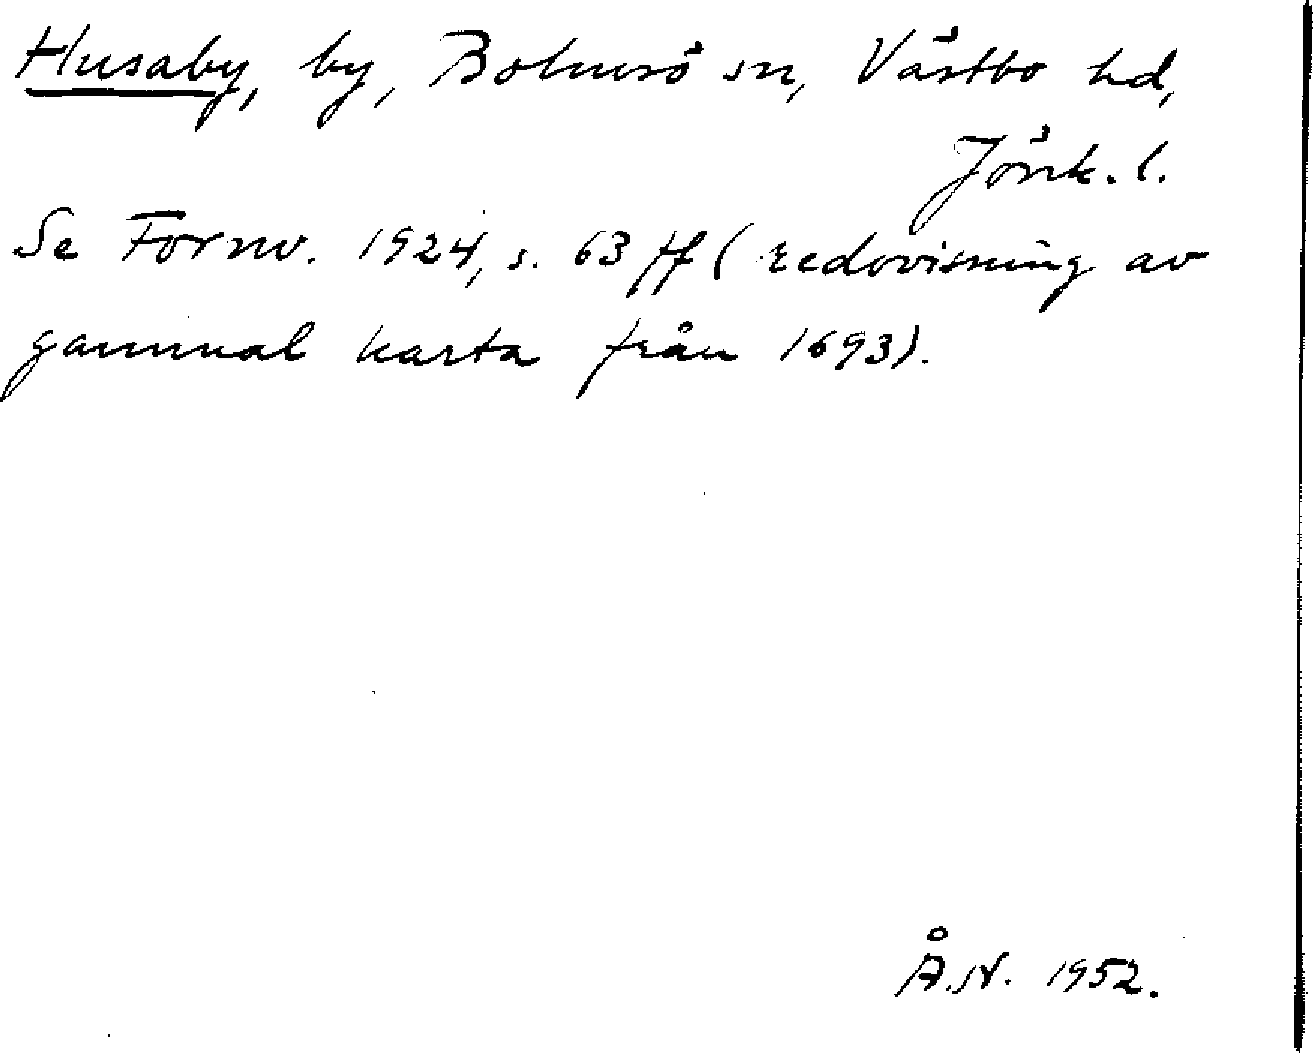 Husaby, by, Bolmsö sn, Västbo hd,
Jönk. l.
Se Fornv. 1924, s. 63 ff (redovisning av
gammal karta från 1693).
Å.N. 1952.